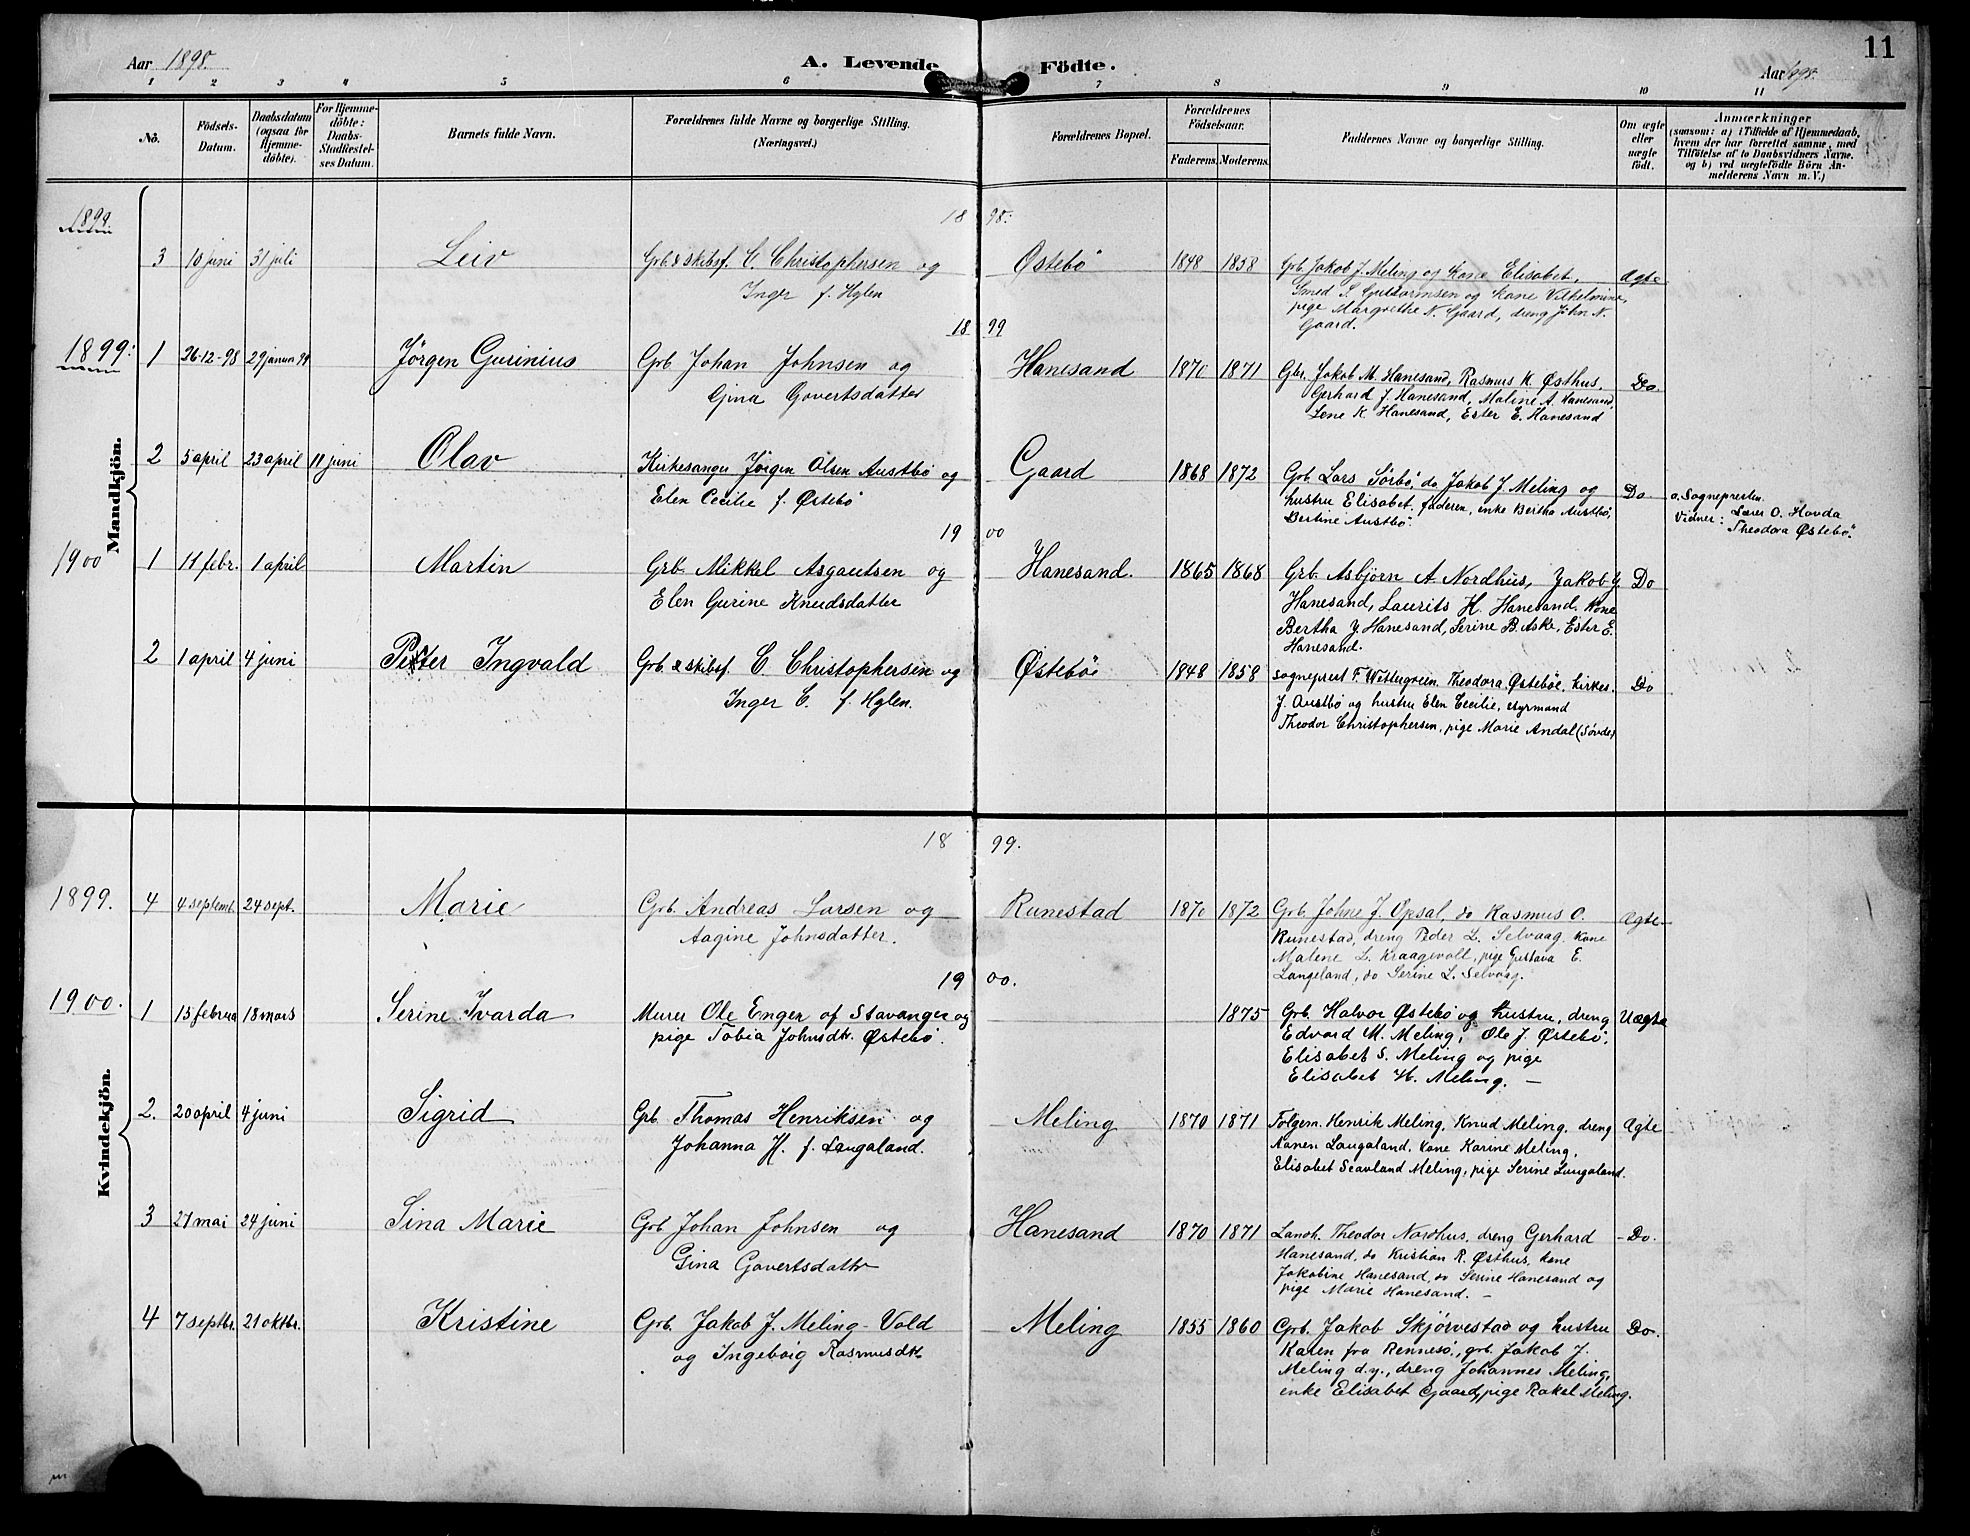 11
Aar 1898.
A. Levende Födte.
Aar 1898.
1 2 3 4 5 6 7 8 9 10 11
No.
Födsels-
Datum.
Daabsdatum
(ogsaa for
Hjemme-
döbte).
For Hjemme-
döbte:
Daabs-
Stadfæstel-
ses Datum.
Barnets fulde Navn.
Forældrenes fulde Navne og borgerlige Stilling.
(Næringsvei.)
Forældrenes Bopæl.
Forældrenes
Födselsaar.
Faderens. Moderens.
Faddernes Navne og borgerlige Stilling.
Om ægte
eller
uægte
födt.
Anmærkninger
(saasom: a) i Tilfælde af Hjemmedaab,
hvem der har forrettet samme, med
Tilföielse af to Daabsvidners Navne,
og b) ved uægtefödte Börn An-
melderens Navn m. V.)
Mandkjön.
1899.
18 98.
3 10 juni 31 juli Leiv
Grb & skibsf. C. Christophersen og
Inger f. Hylen
Østebö 1848 1858
Grb. Jakob J. Meling og kone Elisabet,
Smed S. Guttormsen og kone Vilhelmine,
pige Margrethe N. Gaard, dreng John N.
Gaard.
Ægte
18 99
1899: 1 26-12-98 29 januar 99 Jörgen Gurinius
Grb Johan Johnsen og
Gina Govertsdatter
Hanesand 1870 1871
Gbr. Jakob M. Hanesand, Rasmus K. Østhus,
Gerhard J. Hanesand, Maline A. Hanesand,
Lene K. Hanesand, Ester E. Hanesand
Do.
2 5 april 23 april 11 juni Olav
Kirkesanger Jörgen Olsen Austbö og
Elen Cecilie f. Østebö
Gaard 1868 1872
Grb Lars Sörbö, do Jakob J Meling og
hustru Elisabet, faderen, enke Bertha Austbö,
Bertine Austbö.
Do
a. Sognepresten.
Vidner: Lærer O. Hovda
Theodora Østebö.
19 00
1900 1 11 febr. 1 april Martin
Grb Mikkel Asgautsen og
Elen Gurine Knudsdatter
Hanesand. 1865 1868
Grb Asbjörn A Nordhus, Jakob Y
Hanesand, Laurits H. Hanesand. Kone
Bertha Y Hanesand, Serine B. Aske, Ester E.
Hanesand.
Do
2 1 april 4 juni Peter Ingvald
Grb. & skibsf. C. Christophersen og
Inger C. f. Hylen.
Østebö 1848 1858
Sogneprest F Wettergreen, Theodora Østeböe, kirkes.
J. Austbö og hustru Elen Cecilie, styrmand
Theodor Christophersen, pige Marie Andal (Sövde)
Do
Kvindekjön.
18 99.
1899. 4 4 septemb. 24 sept. Marie
Grb. Andreas Larsen og
Aagine Johnsdatter.
Runestad 1870 1872
Grb. Johne J. Opsal, do Rasmus O.
Runestad, dreng Peder L. Selvaag. Kone
Malene L. Kraagevoll, pige Gustava E.
Langeland, do Serine L. Selvaag.
Ægte
19 00.
1900. 1 15 februa 18 mars Serine Ivarda
Murer Ole Enger af Stavanger og
pige Tobia Johnsdtr. Østebö.
1875
Grb. Halvor Østebö og hustru, dreng
Edvard M. Meling, Ole J. Østebö,
Elisabet S. Meling og pige
Elisabet H. Meling. —
Uægte
2. 20 april 4 juni Sigrid
Grb. Thomas Henriksen og
Johanna H. f. Langaland.
Meling 1870 1871
Folgem. Henrik Meling, Knud Meling, dreng
Aanen Langaland, kone Karine Meling,
Elisabet Scavland Meling, pige Serine Langaland.
Ægte
3 27 mai 24 juni Sina Marie
Grb Johan Johnsen og
Gina Govertsdattr
Hanesand 1870 1871
Landh. Theodor Nordhus, dreng Gerhard
Hanesand, do Kristian R. Østhus, kone
Jakobine Hanesand, do Serine Hanesand og
pige Marie Hanesand. —
Do.
4 7 septbr. 21 oktbr. Kristine
Grb. Jakob J. Meling-Vold
og Ingeborg Rasmusdtr.
Meling 1855 1860
Grb. Jakob Skjörvestad og hustru
Karen fra Rennesö, grb. Jakob J.
Meling d.y., dreng Johannes Meling,
enke Elisabet Gaard, pige Rakel Meling.
Do.